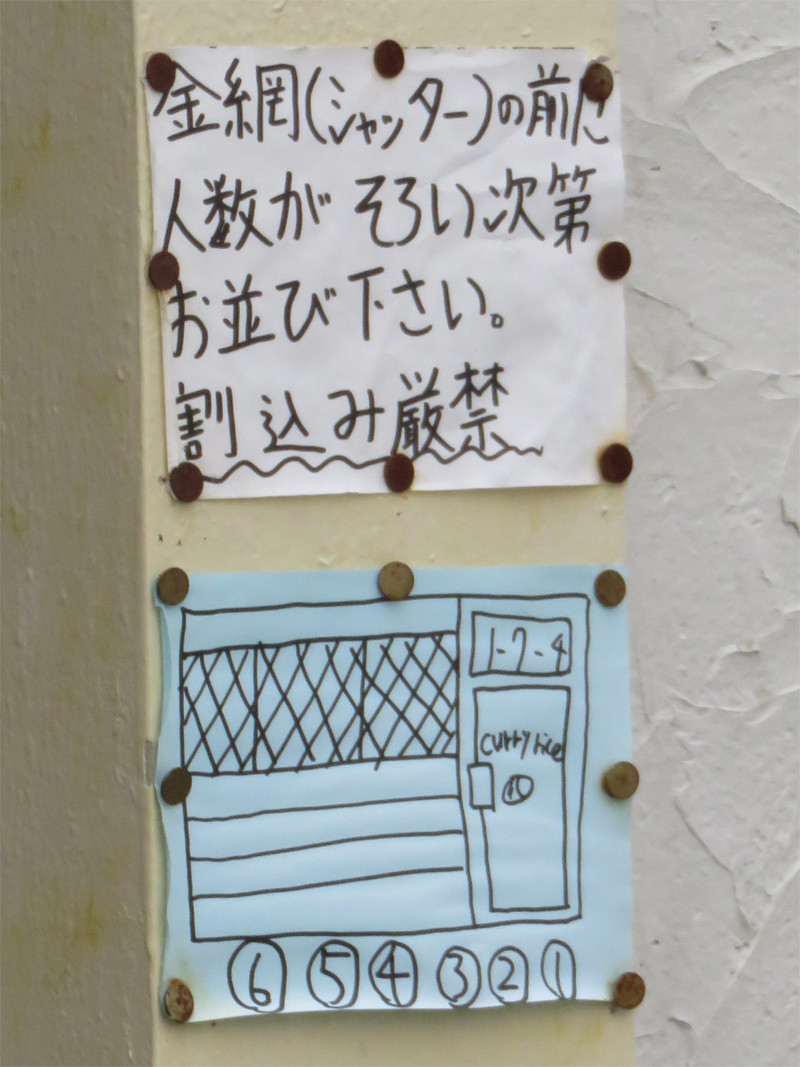 金網(シャンター)の前に
人数が そろい次第
お並び下さい。
割込み厳禁
1-7-4
curry rice
⑥ ⑤ ④ ③ ② ①